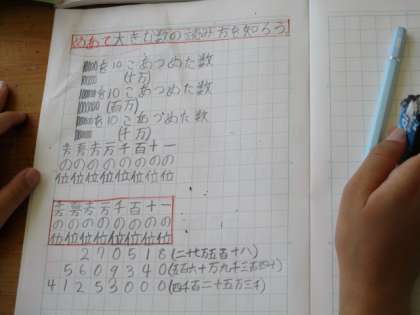 めあて 大きな数の読み方を知ろう。
を10こあつめた数
(十万)
を10こあつめた数
(百万)
を10こあつめた数
(千万)
万万万万千百十一
のののののののの
位位位位位位位位
万万万万千百十一
のののののののの
位位位位位位位位
270518(二十七万五百十八)
5609340(五百六十万九千三百四十)
41253000(四千百二十五万三千)